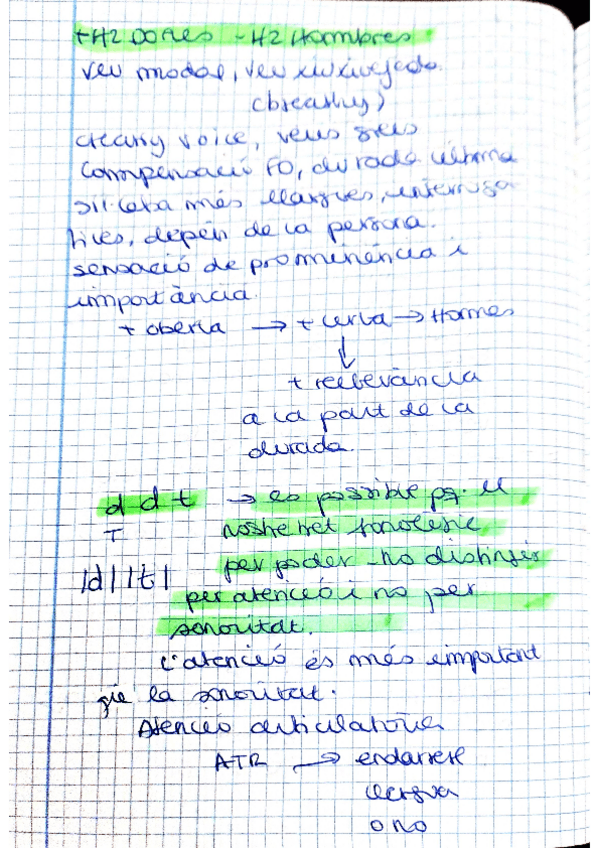 +Hz Dones -Hz Hombres
veu modal, veu xiuxiuejada
(breathy)
creaky voice, veus greus
Compensació F0, durada última
síl·laba més llargues, interroga
tives, depèn de la persona.
sensació de prominència i
importància.
+ oberta → + curta → Homes
↓
+ rellevància
a la part de la
durada.
d d t → és possible pq. el
T nostre fonològic
per poder no distingir
|d| |t|
per atenció i no per
sonoritat.
L'atenció és més important
que la sonoritat.
Atenció articulatòria
ATR → endarrere
llengua
o no